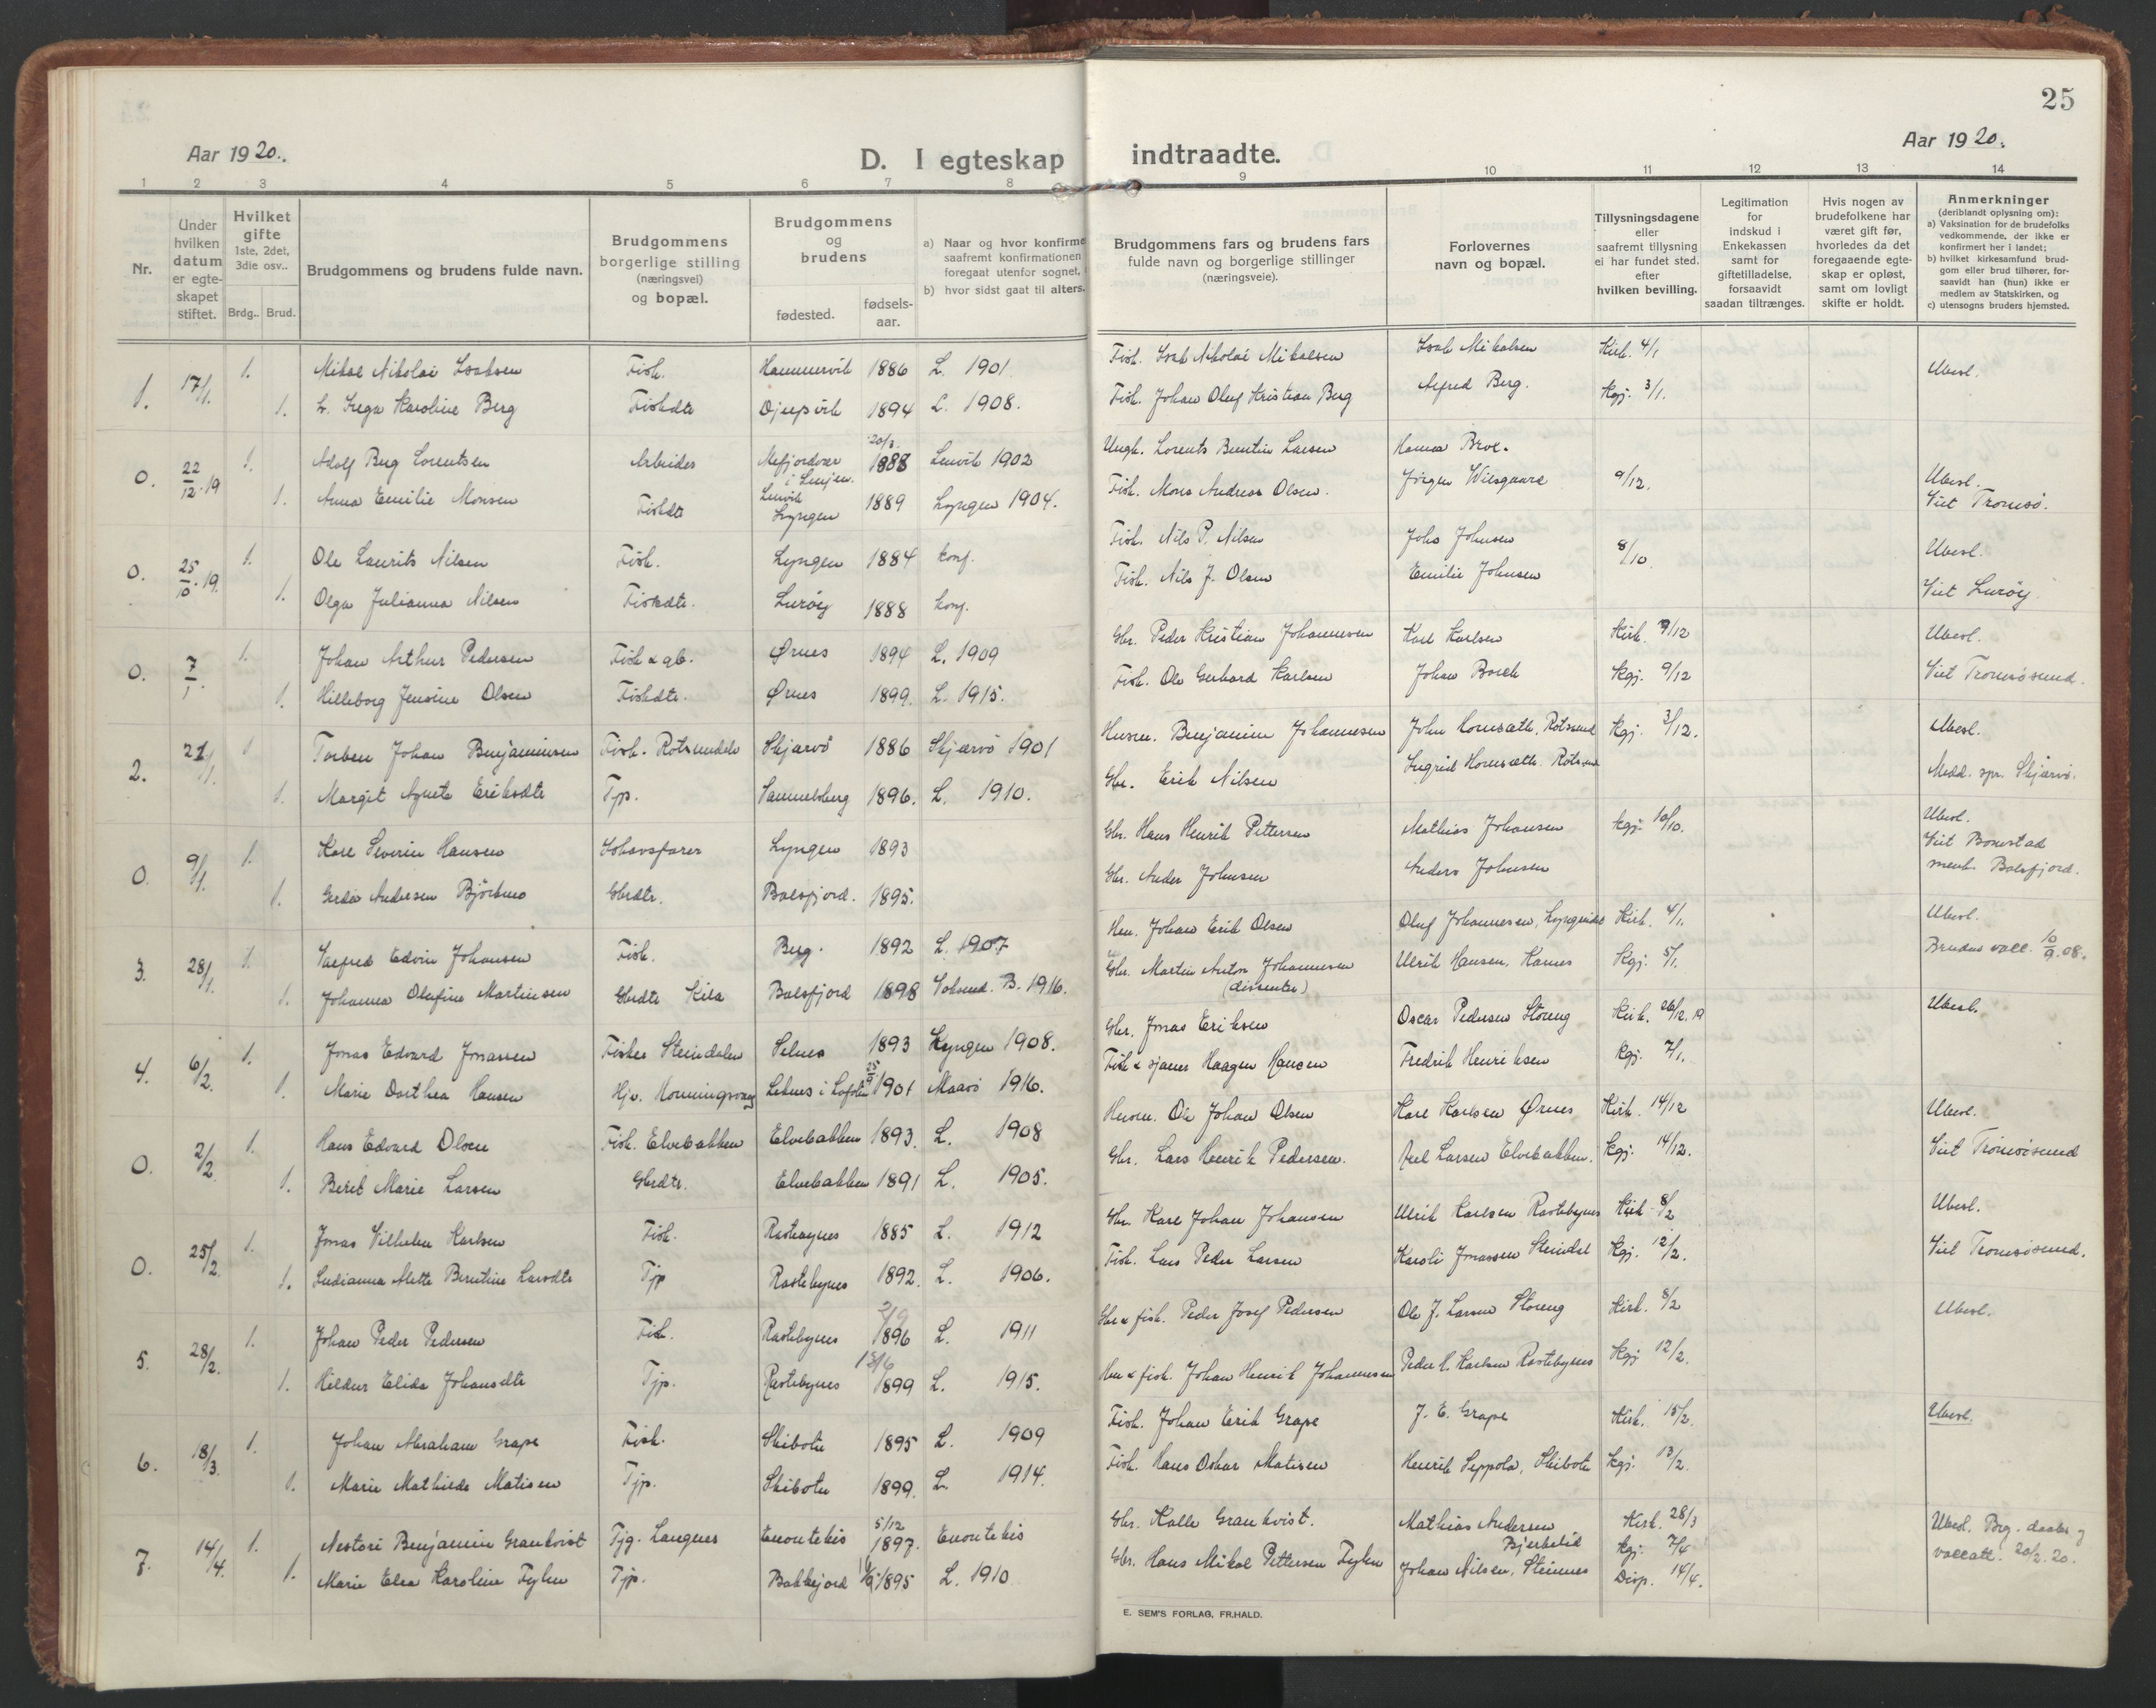 25
Aar 1920.
D. I egteskap indtraadte.
Aar 1920.
1 2 3 4 5 6 7 8 9 10 11 12 13 14
Nr.
Under hvilken datum er egteskapet stiftet.
Hvilket gifte
1ste, 2det, 3die osv..
Brdg.. Brud.
Brudgommens og brudens fulde navn.
Brudgommens borgerlige stilling (næringsvei) og bopæl.
Brudgommens og brudens
fødested.
fødsels-aar.
a) Naar og hvor konfirme
saafremt konfirmationen
foregaat utenfor sognet,
b) hvor sidst gaat til alters.
Brudgommens fars og brudens fars
fulde navn og borgerlige stillinger
(næringsveie).
Forlovernes navn og bopæl.
Tillysningsdagene
eller
saafremt tillysning
ei har fundet sted.
efter
hvilken bevilling.
Legitimation
for
indskud i
Enkekassen
samt for
giftetilladelse,
forsaavidt
saadan tiltrænges.
Hvis nogen av
brudefolkene har
været gift før,
hvorledes da det
foregaaende egte-
skap er opløst,
samt om lovligt
skifte er holdt.
Anmerkninger
(deriblandt oplysning om):
a) Vaksination for de brudefolks
vedkommende, der ikke er
konfirmert her i landet;
b) hvilket kirkesamfund brud-
gom eller brud tilhører, for-
saavidt han (hun) ikke er
medlem av Statskirken, og
c) utensogns bruders hjemsted.
1. 17/1. 1. Mikal Nikolai Isaksen Fisk. Hammervik 1886 L. 1901 Fisk. Isak Nikolai Mikalsen Isak Mikalsen Kirk. 4/1 Ubesl.
1. Inga Karoline Berg Fiskdtr Djupvik 1894 L. 1908. Fisk. Johan Oluf Kristian Berg Alfred Berg. Kgj. 3/1.
0. 22/12.19 1. Adolf Berg Lorentsen Arbeider Mefjordvær i Senjen. 20/3 1888 Lenvik 1902 Ungk. Lorents Berntin Larsen Hanna Broe.
1. Anna Emilie Monsen Fiskdtr Lenvik Lyngen 1889 Lyngen 1904. Fisk. Mons Andreas Olsen. Jörgen Wilsgaard 9/12. Ubesl. Viet Tromsö.
0. 25/10.19. 1. Ole Laurits Nilsen Fisk. Lyngen 1884 konf. Fisk. Nils P. Nilsen Johs Johnsen 8/10. Ubesl.
1. Olga Julianna Nilsen Fiskdtr. Luröy 1888 konf. Fisk. Nils J. Olsen Emilie Johnsen Viet Luröy.
0. 7/1. 1. Johan Arthur Pedersen Fisk & gb. Ørnes 1894 L. 1909 Gbr. Peder Kristian Johannesen Karl Karlsen Kirk. 7/12 Ubesl.
1. Hilleborg Jensine Olsen Fiskdtr. Ørnes 1899. L. 1915. Fisk. Ole Gerhard Karlsen Johan Bosek Kgj. 9/12 Viet Tromsösund.
2. 21/1. 1 Torben Johan Benjaminsen Fisk. Rotsundeln Skjærvö 1886 Skjærvö 1901 Husm. Benjamin Johannesen John Hornsæth, Rotsund Kgj. 3/12. Ubesl.
1. Margit Agnete Eriksdtr Tjp. Samuelsberg 1896. L. 1910. Gbr. Erik Nilsen Ingrid Hornsæth. Rotsun Medd. spr. Skjærvö.
0. 9/1. 1. Karl Severin Hansen Sohavsfarer Lyngen 1893 Gbr. Hans Henrik Pettersen Mathias Johansen Kgj. 10/10. Ubesl.
1. Gerda Andersen Björkmo Gbrdtr. Balsfjord. 1895. Gbr. Ander Johnsen Anders Johnsen Viet Bonestad menh. Balsfjord.
3. 28/1. 1. Valfred Edvin Johansen Fisk. Berg. 1892 L. 1907 Hm. Johan Erik Olsen Oluf Johannesen, Lyngseidet Kirk. 4/1. Ubesl.
1. Johanna Olufine Martinsen Gbrdtr Kila Balsfjord 1898 B. 1916. Gbr. Martin Anton Johannesen (dissenter) Ulrik Hansen, Karnes Kgj. 5/1. Brudens vatt. 10/9.08.
4. 6/2. 1. Jonas Edvard Jonassen Fisker Steindalen Selnes 1893 Lyngen 1908. Gbr. Jonas Eriksen Oscar Pedersen Storeng Kirk. 26/12.19 Ubesl.
1. Marie Dorthea Hansen Hjv. Honningsvaag Leknes i Lofoten 25/5 1901 Maasö 1916. Fisk & sjauer Haagen Hansen Fredrik Henriksen Kgj. 7/1.
0. 2/2. 1. Hans Edvard Olsen Fisk. Elvebakken Elvebakken 1893. L. 1908 Husm. Ole Johan Olsen Karl Karlsen Ørnes Kirk. 14/12 Ubesl.
1. Berit Marie Larsen Gbrdtr. Elvebakken 1891 L. 1905. Gbr. Lars Henrik Pedersen. Axel Larsen Elvebakken. Kgj. 14/12. Viet Tromsösund
0. 25/2. 1. Jonas Vilhelm Karlsen Fisk. Rastebynes 1885 L. 1912 Gbr. Karl Johan Johansen Ulrik Karlsen Rastebynes Kirk 8/2 Ubesl.
1. Indianna Mette Berntine Larsdtr Tjp Rastebynes 1892. L. 1906. Fisk. Lars Peder Larsen Karoli Jonassen Steindal Kgj. 12/2. Viet Tromsösund.
5. 28/2. 1. Johan Peder Pedersen Fisk. Rastebynes 2/9 1896 L. 1911 Gbr & fisk. Peder Josef Pedersen Ole J. Larsen Storeng Kirk. 8/2 Ubesl.
1. Hildur Elida Johansdtr Tjp. Rastebynes 15/6 1899 L. 1915. Hm & fisk. Johan Henrik Johannesen Peder H. Karlsen Rastebynes Kgj 12/2.
6. 18/3. 1. Johan Abraham Grape Fisk. Skibotn 1895 L. 1909 Fisk. Johan Erik Grape J. E. Grape Kirk. 15/2. Ubesl.
1. Marie Mathilde Matisen Tjp. Skibotn 1899. L. 1914. Fisk. Hans Oskar Matisen Henrik Seppola, Skibotn Kgj. 13/2.
7. 14/4. 1. Nestori Benjamin Grankvist Tjg. Langnes Enontekis 5/12 1897. Enontekis Gbr. Kalle Grankvist. Mathias Andersen Bjerkelid Kirk. 28/3 Kgj. 7/4 Ubesl. Brg. daabs og
1. Marie Elea Karoline Fyhn Tjp. Bakkejord 1895 L. 1910 Gbr. Hans Mikal Pettersen Fyhn Johan Nilsen, Steinnes Disp. 14/4. vaccatt. 20/2. 20.
E. SEM'S FORLAG, FR.HALD.